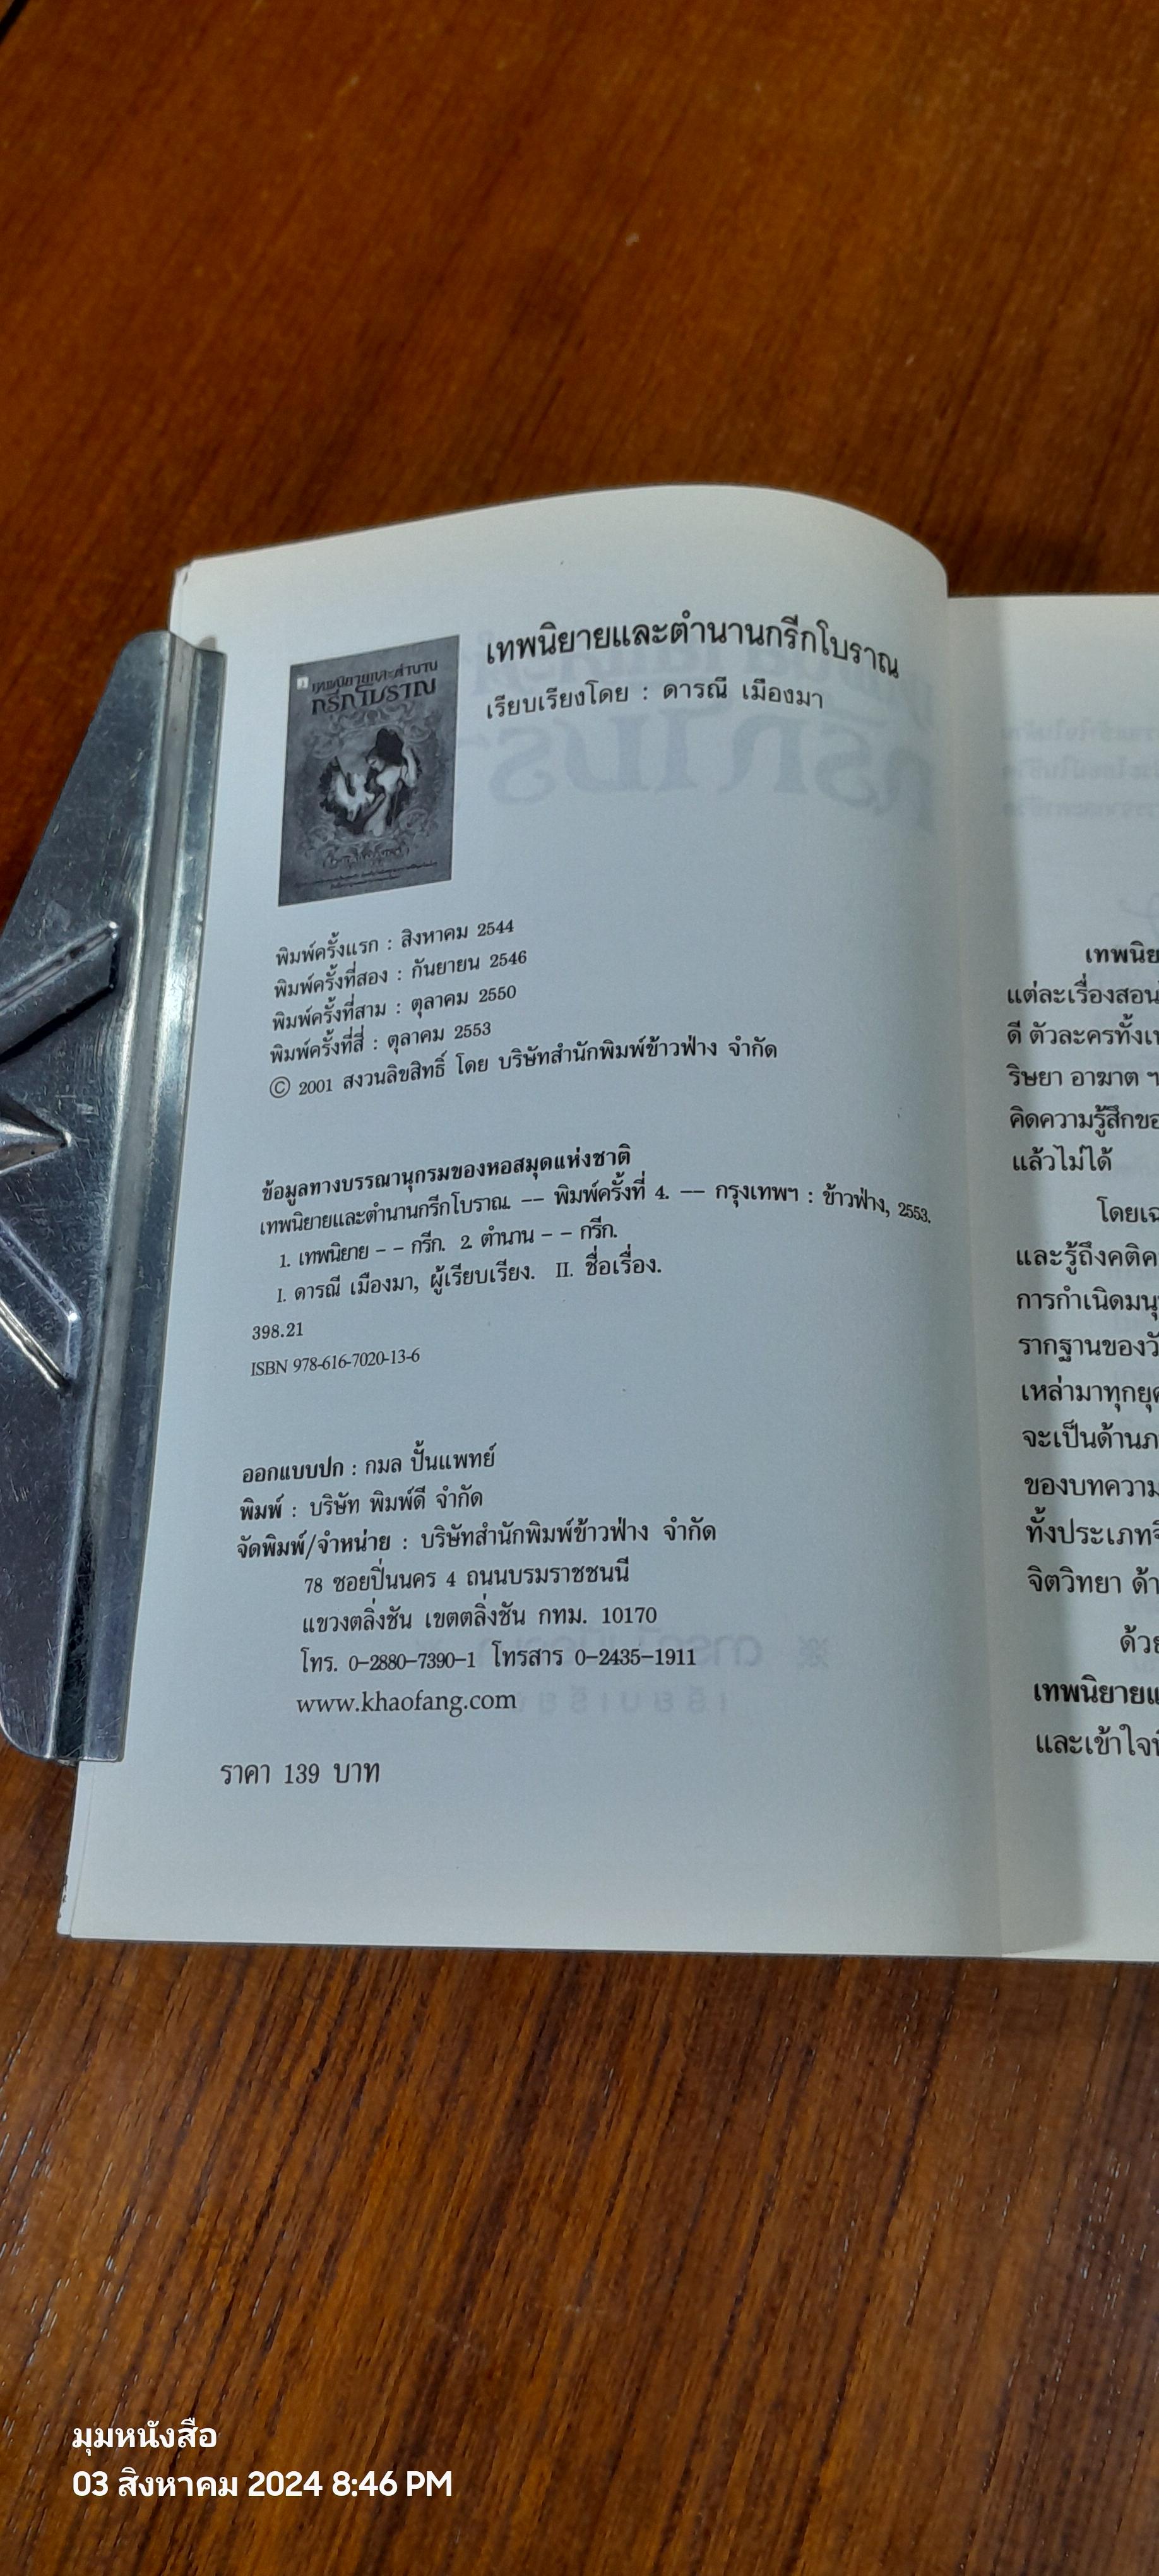 เทพนิยายและตำนานกรีกโบราณ
เรียบเรียงโดย : ดารณี เมืองมา
เทพนิยายและตำนาน
กรีกโบราณ
พิมพ์ครั้งแรก : สิงหาคม 2544
พิมพ์ครั้งที่สอง : กันยายน 2546
พิมพ์ครั้งที่สาม : ตุลาคม 2550
พิมพ์ครั้งที่สี่ : ตุลาคม 2553
© 2001 สงวนลิขสิทธิ์ โดย บริษัทสำนักพิมพ์ข้าวฟ่าง จำกัด
ข้อมูลทางบรรณานุกรมของหอสมุดแห่งชาติ
เทพนิยายและตำนานกรีกโบราณ. -- พิมพ์ครั้งที่ 4. -- กรุงเทพฯ : ข้าวฟ่าง, 2553.
1. เทพนิยาย - - กรีก. 2. ตำนาน - - กรีก.
I. ดารณี เมืองมา, ผู้เรียบเรียง. II. ชื่อเรื่อง.
398.21
ISBN 978-616-7020-13-6
ออกแบบปก : กมล ปั้นแพทย์
พิมพ์ : บริษัท พิมพ์ดี จำกัด
จัดพิมพ์/จำหน่าย : บริษัทสำนักพิมพ์ข้าวฟ่าง จำกัด
78 ซอยปิ่นนคร 4 ถนนบรมราชชนนี
แขวงตลิ่งชัน เขตตลิ่งชัน กทม. 10170
โทร. 0-2880-7390-1 โทรสาร 0-2435-1911
www.khaofang.com
ราคา 139 บาท
เทพนิย
แต่ละเรื่องสอน
ดี ตัวละครทั้งเ
ริษยา อาฆาต ฯ
คิดความรู้สึกขอ
แล้วไม่ได้
โดยเฉ
และรู้ถึงคติค
การกำเนิดมนุ
รากฐานของวั
เหล่ามาทุกยุค
จะเป็นด้านภ
ของบทความ
ทั้งประเภทจิ
จิตวิทยา ด้า
ด้วย
เทพนิยายแ
และเข้าใจที่
มุมหนังสือ
03 สิงหาคม 2024 8:46 PM